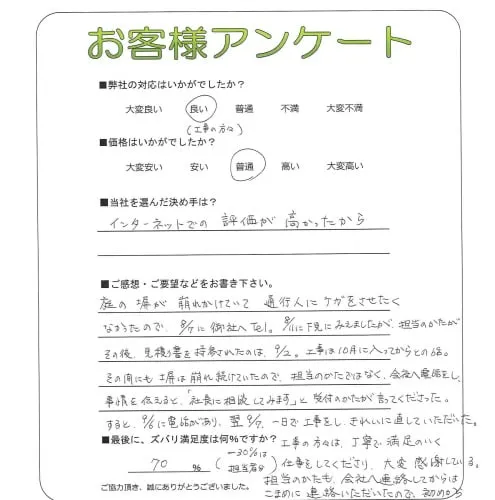 お客様アンケート
■弊社の対応はいかがでしたか?
大変良い 良い 普通 不満 大変不満
(工事の方々)
■価格はいかがでしたか?
大変安い 安い 普通 高い 大変高い
■当社を選んだ決め手は?
インターネットでの 評価が 高かったから
■ご感想・ご要望などをお書き下さい。
庭の塀が 崩れかけていて 通行人に ケガをさせたく
なかったので、8/7に 御社へ Tel。8/11に下見にみえましたが、担当のかたが
その後、見積り書を持参されたのは、9/2。工事は10月に入ってからとの事。
その間にも 塀は崩れ続けていたので、担当のかたではなく、会社へ電話をし、
事情を伝えると、「社長に相談してみます」と 受付のかたが言ってくださった。
すると、9/6に電話があり、翌9/7、一日で工事をし、きれいに直していただいた。
■最後に、ズバリ満足度は何%ですか?
70 % (−30%は 担当者分)
工事の方々は、丁寧で 満足のいく
仕事をしてくださり、大変 感謝している。
担当のかたも、会社へ連絡してからは
こまめに 連絡いただいたので、初めから
ご協力頂き、誠にありがとうございました。